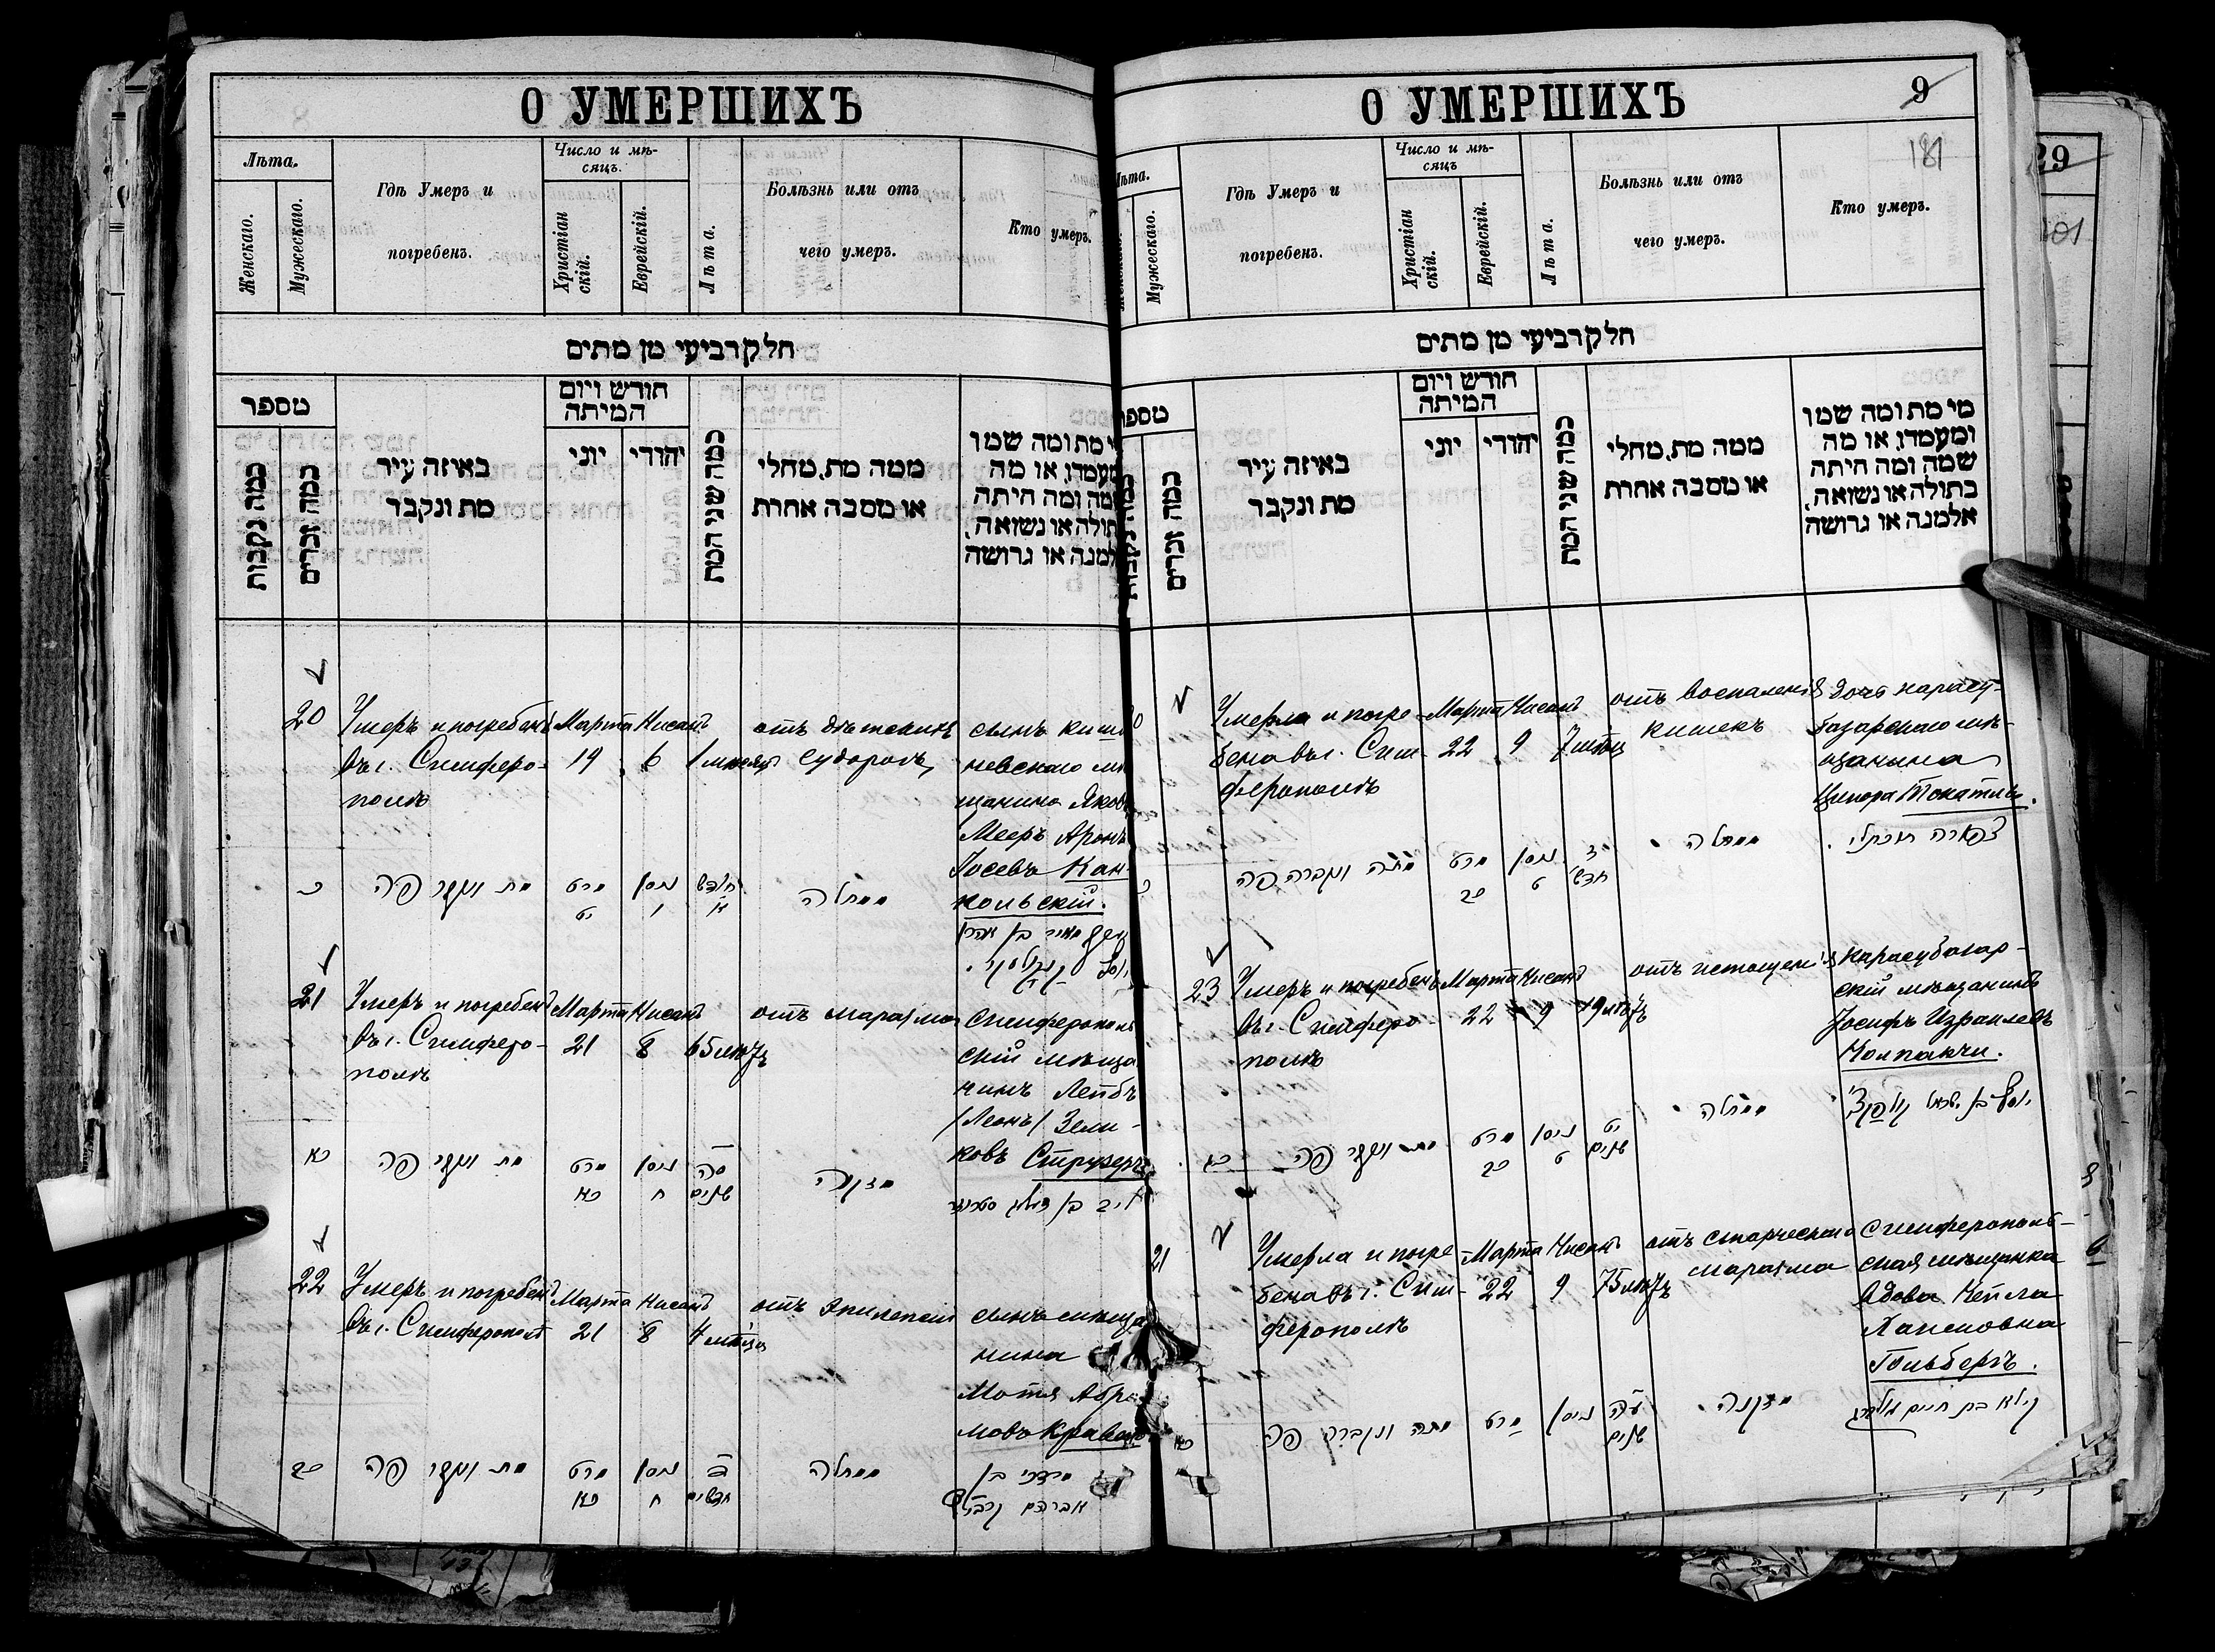 О УМЕРШИХЪ
Лѣта.
Женскаго.
Мужескаго.
Гдѣ Умеръ и
погребенъ.
Число и мѣ-
сяцъ.
Христіан
скій.
Еврейскій.
Лѣта.
Болѣзнь или отъ
чего умеръ.
Кто умеръ.
חלק רביעי מן מתים
מספר
כמה נקבות
כמה זכרים
באיזה עיר
מת ונקבר
חודש ויום
המיתה
יוני
יהודי
כמה שני המת
ממה מת, מחלי
או מסבה אחרת
מי מת ומה שמו
ומעמדו, או מה
שמה ומה היתה
בתולה או נשואה,
אלמנה או גרושה
20
Умеръ и погребенъ
въ г. Симферо-
полѣ
Марта
19
Нисанъ
6
1 мѣсяцъ
отъ дѣтскихъ
судорогъ
сынъ киши
невскаго мѣ
щанина Яков
Мееръ Аронъ
Іосевъ Кан-
кольскій.
כ
מת ונקבר פה
מרט
יט
ניסן
ו
חודש
א
ממחלה
מאיר בן אהרן
יוסף
21
Умеръ и погребенъ
въ г. Симферо-
полѣ
Марта
21
Нисанъ
8
65 лѣтъ
отъ маразма
Симферополь
скій мѣща
нинъ Лейбъ
/Леонъ/ Зели-
ковъ Струзеръ
כא
מת ונקבר פה
מרט
כא
ניסן
ח
סה
שנים
מזקנה
22
Умеръ и погребенъ
въ г. Симферополѣ
Марта
21
Нисанъ
8
4 мѣсяца
отъ эпилепсіи
сынъ мѣща
нина
Мотя Абра
мовъ Кравец
כב
מת ונקבר פה
מרט
כא
ניסן
ח
חדשים
ממחלה
מרדכי בן
אברהם קרבץ
О УМЕРШИХЪ
9
181
Лѣта.
Мужескаго.
Гдѣ Умеръ и
погребенъ.
Число и мѣ-
сяцъ
Христіан
скій.
Еврейскій.
Лѣта.
Болѣзнь или отъ
чего умеръ.
Кто умеръ.
29
חלק רביעי מן מתים
מספר
כמה זכרים
באיזה עיר
מת ונקבר
חודש ויום
המיתה
יוני
יהודי
כמה שני המת
ממה מת, מחלי
או מסבה אחרת
מי מת ומה שמו
ומעמדו, או מה
שמה ומה היתה
בתולה או נשואה,
אלמנה או גרושה
Умерла и погре-
бена въ г. Сим-
ферополѣ
Марта
22
Нисанъ
9
7 мѣсц
отъ воспаленія
кишекъ
дочь карасу-
базарскаго мѣ-
щанина
Ципора Токатлы.
מתה ונקברה פה
מרט
כב
ניסן
ט
ז
חדש
ממחלה
צפורה תוכתלי
23
Умеръ и погребенъ
въ г. Симферо
полѣ
Марта
22
Нисанъ
9
19 лѣтъ
отъ истощенія
Карасубазар-
скій мѣщанинъ
Іосифъ Израилевъ
Колпакчи.
כג
מת ונקבר פה
מרט
כב
ניסן
ט
יט
שנים
ממחלה
יוסף בן ישראל קולפקצ'י
21
Умерла и погре-
бена въ г. Сим-
ферополѣ
Марта
22
Нисанъ
9
75 лѣтъ
отъ старческаго
маразма
Симферополь-
ская мѣщанка
вдова Кейла
Хаимовна
Гольбергъ.
כא
מתה ונקברה פה
מרט
ניסן
עה
שנים
מזקנה
קילא בת חיים גולברג